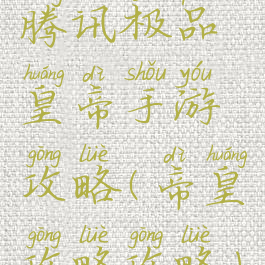 腾讯极品
huáng dì shǒu yóu
皇帝手游
gōng lüè dì huáng
攻略(帝皇
gōng lüè gōng lüè
攻略攻略)